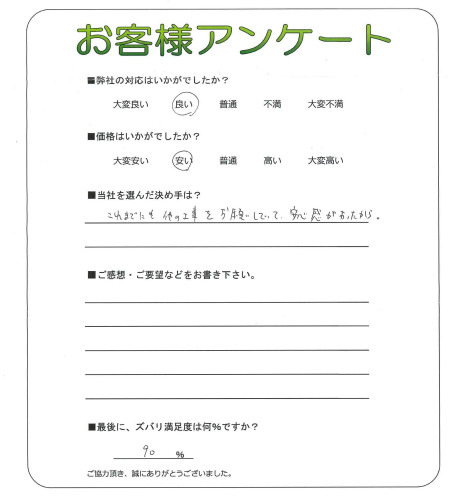 お客様アンケート
■弊社の対応はいかがでしたか？
大変良い 良い 普通 不満 大変不満
■価格はいかがでしたか？
大変安い 安い 普通 高い 大変高い
■当社を選んだ決め手は？
これまでにも 他の工事を お願いしていて、安心感があったから。
■ご感想・ご要望などをお書き下さい。
■最後に、ズバリ満足度は何%ですか？
90 %
ご協力頂き、誠にありがとうございました。